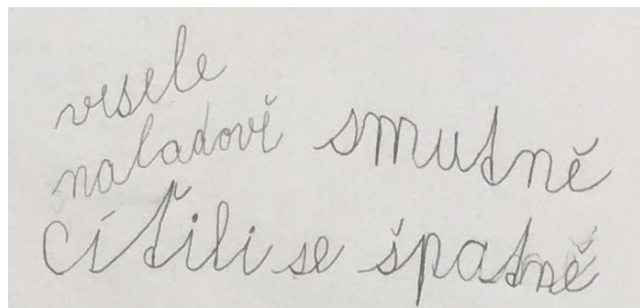 vesele
naladově smutně
cíťili se špatně